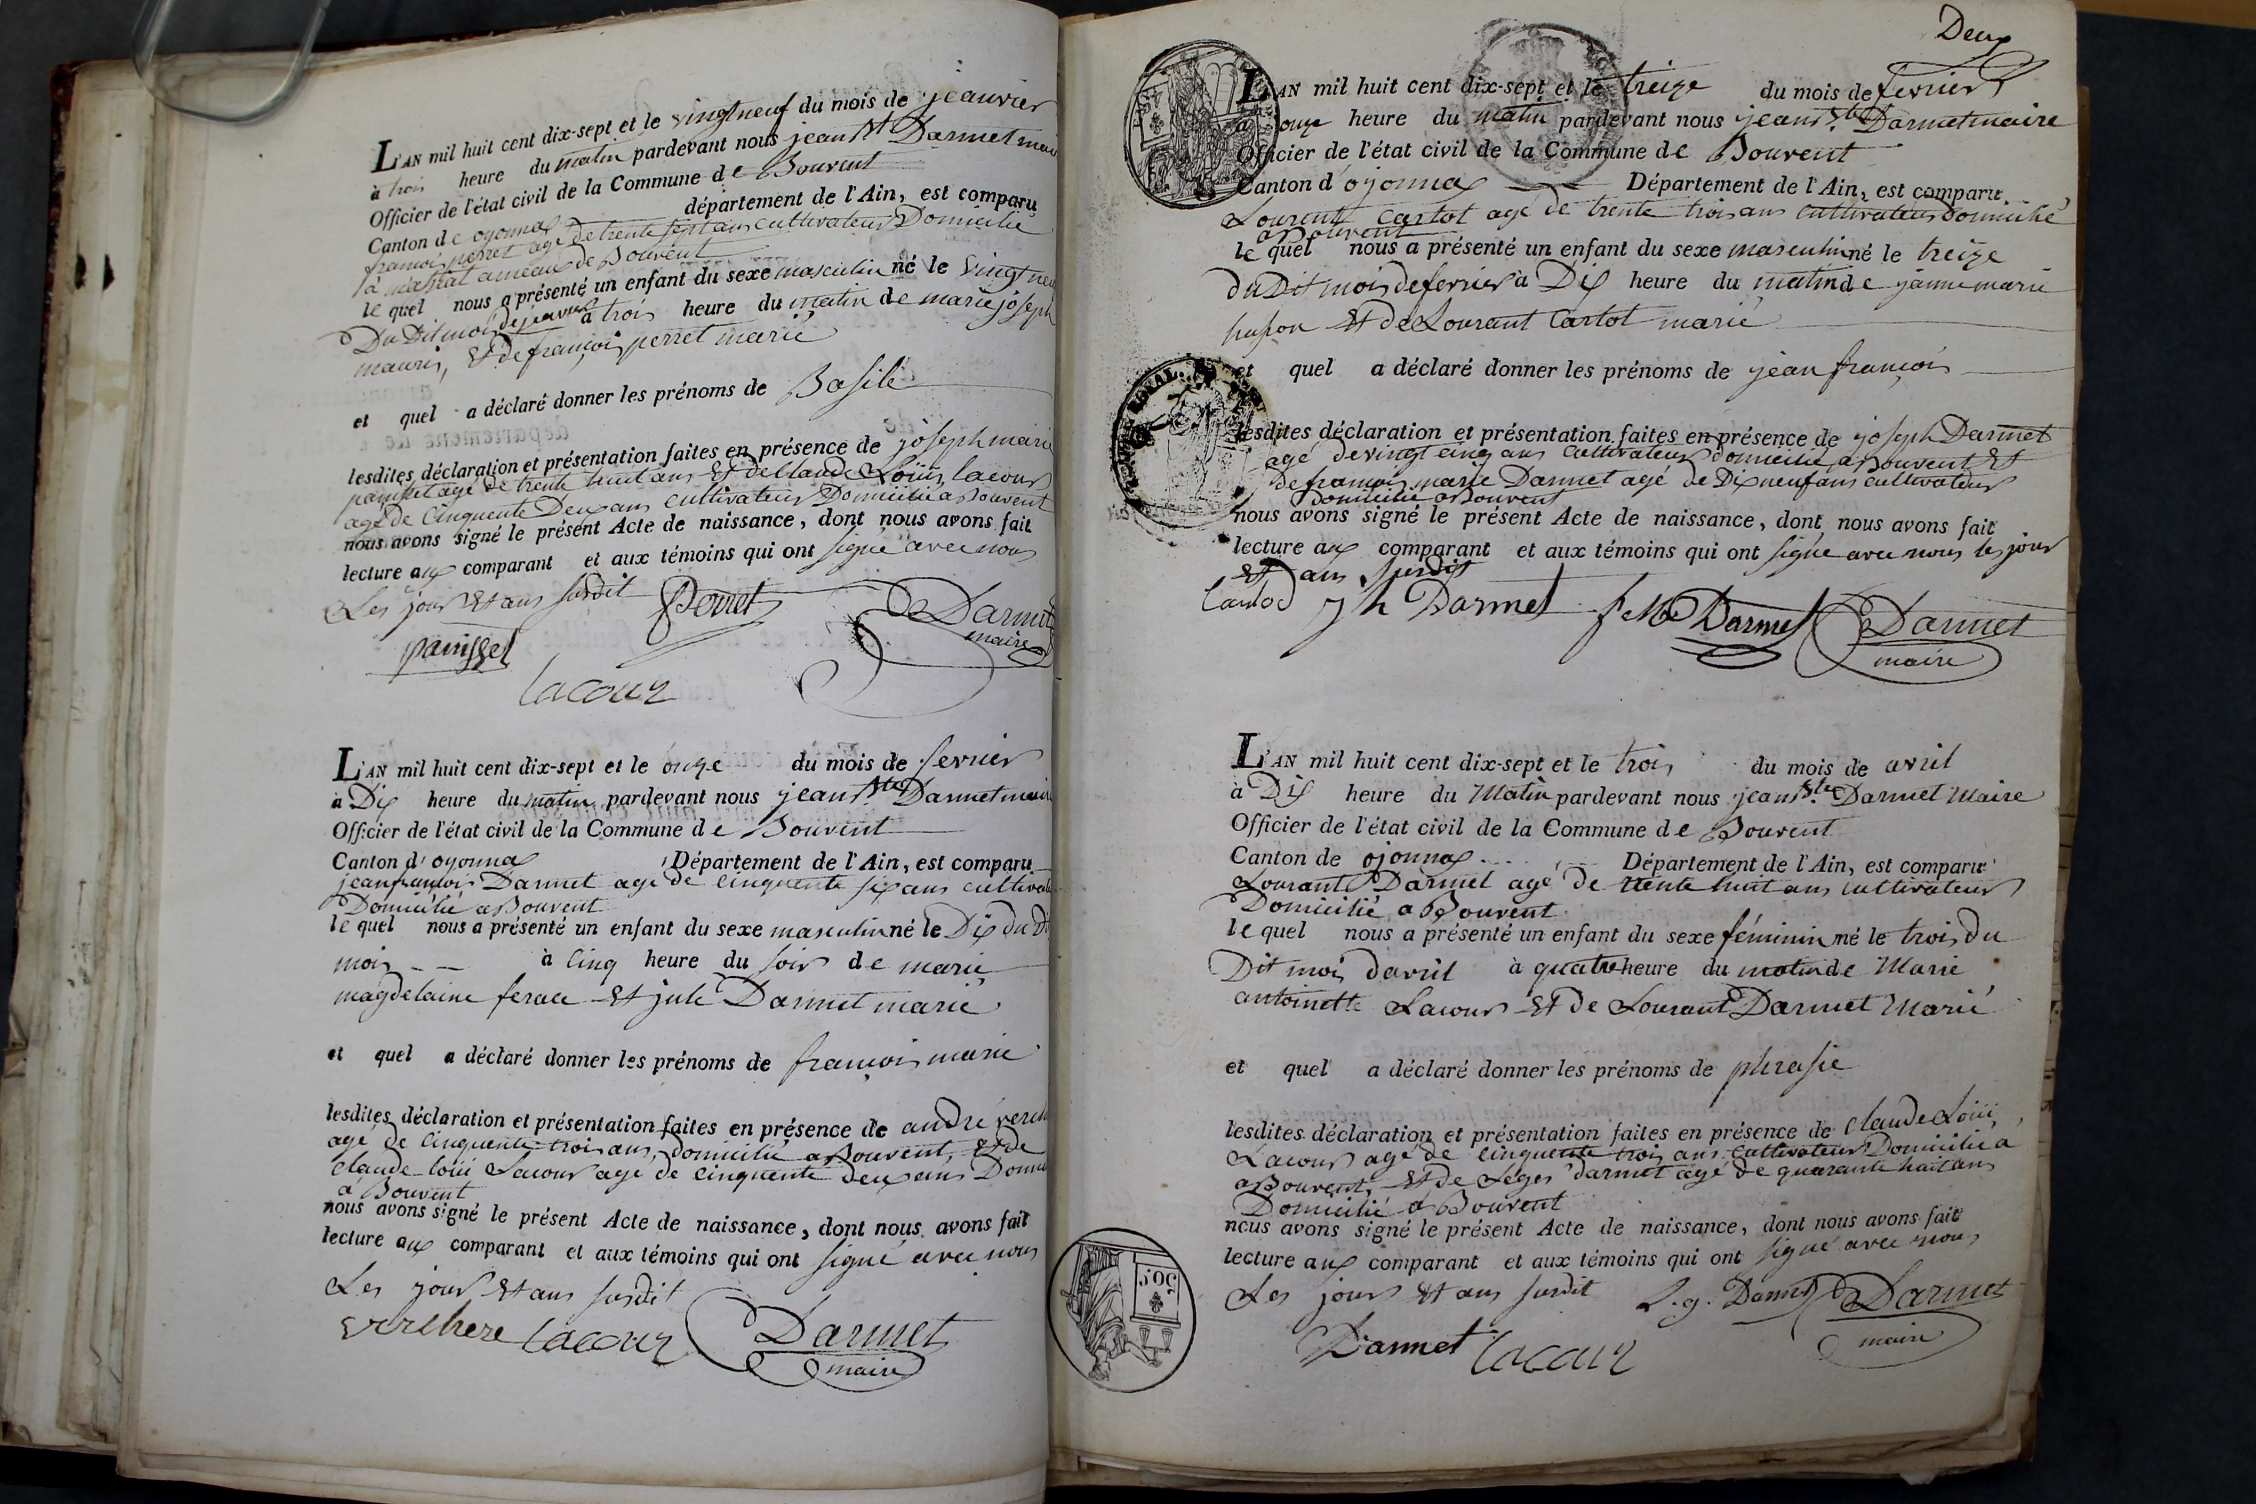 L'AN mil huit cent dix-sept et le vingt neuf du mois de jeanvier
à trois heure du matin pardevant nous jean Bt Darmet mair
Officier de l'état civil de la Commune de Bouvent
Canton de oyonnax département de l'Ain, est comparu
françois perret agé de trente sept ans cultivateur Domicilié
a ameau de Bouvent
le quel nous a présenté un enfant du sexe masculin né le vingt neu
Du Dit moi de jeanvier à trois heure du matin de marie joseph
mauris, Et de françois perret marié
et quel a déclaré donner les prénoms de Basile
lesdites déclaration et présentation faites en présence de joseph marie
panisset agé de trente huit ans Et de Claude Loüis lacour
agé de Cinquente Deux ans cultivateur Domicilié a Bouvent
nous avons signé le présent Acte de naissance, dont nous avons fait
lecture aux comparant et aux témoins qui ont signé avec nous
Les jour Et ans susdit Perret Darmet
panisset maire
lacour
L'AN mil huit cent dix-sept et le onze du mois de fevrier
à Dix heure du matin pardevant nous jean Bte Darmet mair
Officier de l'état civil de la Commune de Bouvent
Canton d'oyonnax Département de l'Ain, est comparu
jean françois Darmet agé de cinquente six ans cultivat
Domicilié a Bouvent
le quel nous a présenté un enfant du sexe masculin né le Dix du Di
mois à Cinq heure du soir de marie
magdelaine ferace Et jule Darmet marié
et quel a déclaré donner les prénoms de françois marie
lesdites déclaration et présentation faites en présence de andré verch
agé de Cinquente trois ans, domicilié a Bouvent, Et de
Claude loüi Lacour agé de cinquente deux ans Domici
a Bouvent
nous avons signé le présent Acte de naissance, dont nous avons fait
lecture aux comparant et aux témoins qui ont signé avec nous
Les jour Et ans susdit
verchere lacour Darmet
maire
Deux
L'AN mil huit cent dix-sept et le treize du mois de fevrier
à onze heure du matin pardevant nous jean Bte Darmet maire
Officier de l'état civil de la Commune de Bouvent
Canton d'oyonnax Département de l'Ain, est comparu
Lourent Carlot agé de trente trois ans cultivateur domicilié
a Bouvent
le quel nous a présenté un enfant du sexe masculin né le treize
du Dit mois de fevrier à Dix heure du matin de janne marie
Et de Lourant Carlot marié
et quel a déclaré donner les prénoms de jean françois
lesdites déclaration et présentation faites en présence de joseph Darmet
agé de vingt cinq ans cultivateur domicilié a Bouvent Et
de françois marie Darmet agé de Dix neuf ans cultivateur
domicilié a Bouvent
nous avons signé le présent Acte de naissance, dont nous avons fait
lecture aux comparant et aux témoins qui ont signé avec nous les jour
Et ans susdit
jh Darmet f Me Darmet Darmet
maire
L'AN mil huit cent dix-sept et le trois du mois de avril
à Dix heure du Matin pardevant nous jean Bte Darmet Maire
Officier de l'état civil de la Commune de Bouvent
Canton de ojonnax Département de l'Ain, est comparu
Lourant Darmet agé de trente huit ans cultivateur
Domicilié a Bouvent
le quel nous a présenté un enfant du sexe féminin né le trois du
Dit moi d'avril à quatre heure du matin de Marie
antoinette Lacour Et de Lourant Darmet Marié
et quel a déclaré donner les prénoms de phrasie
lesdites déclaration et présentation faites en présence de Claude Loüi
Lacour agé de cinquente trois ans cultivateur Domicilié a
a Bouvent, Et de Leger Darmet agé de quarante huit ans
Domicilié a Bouvent
nous avons signé le présent Acte de naissance, dont nous avons fait
lecture aux comparant et aux témoins qui ont signé avec nous
Les jour Et ans susdit L.g. Darmet Darmet
Darmet lacour maire
50c.